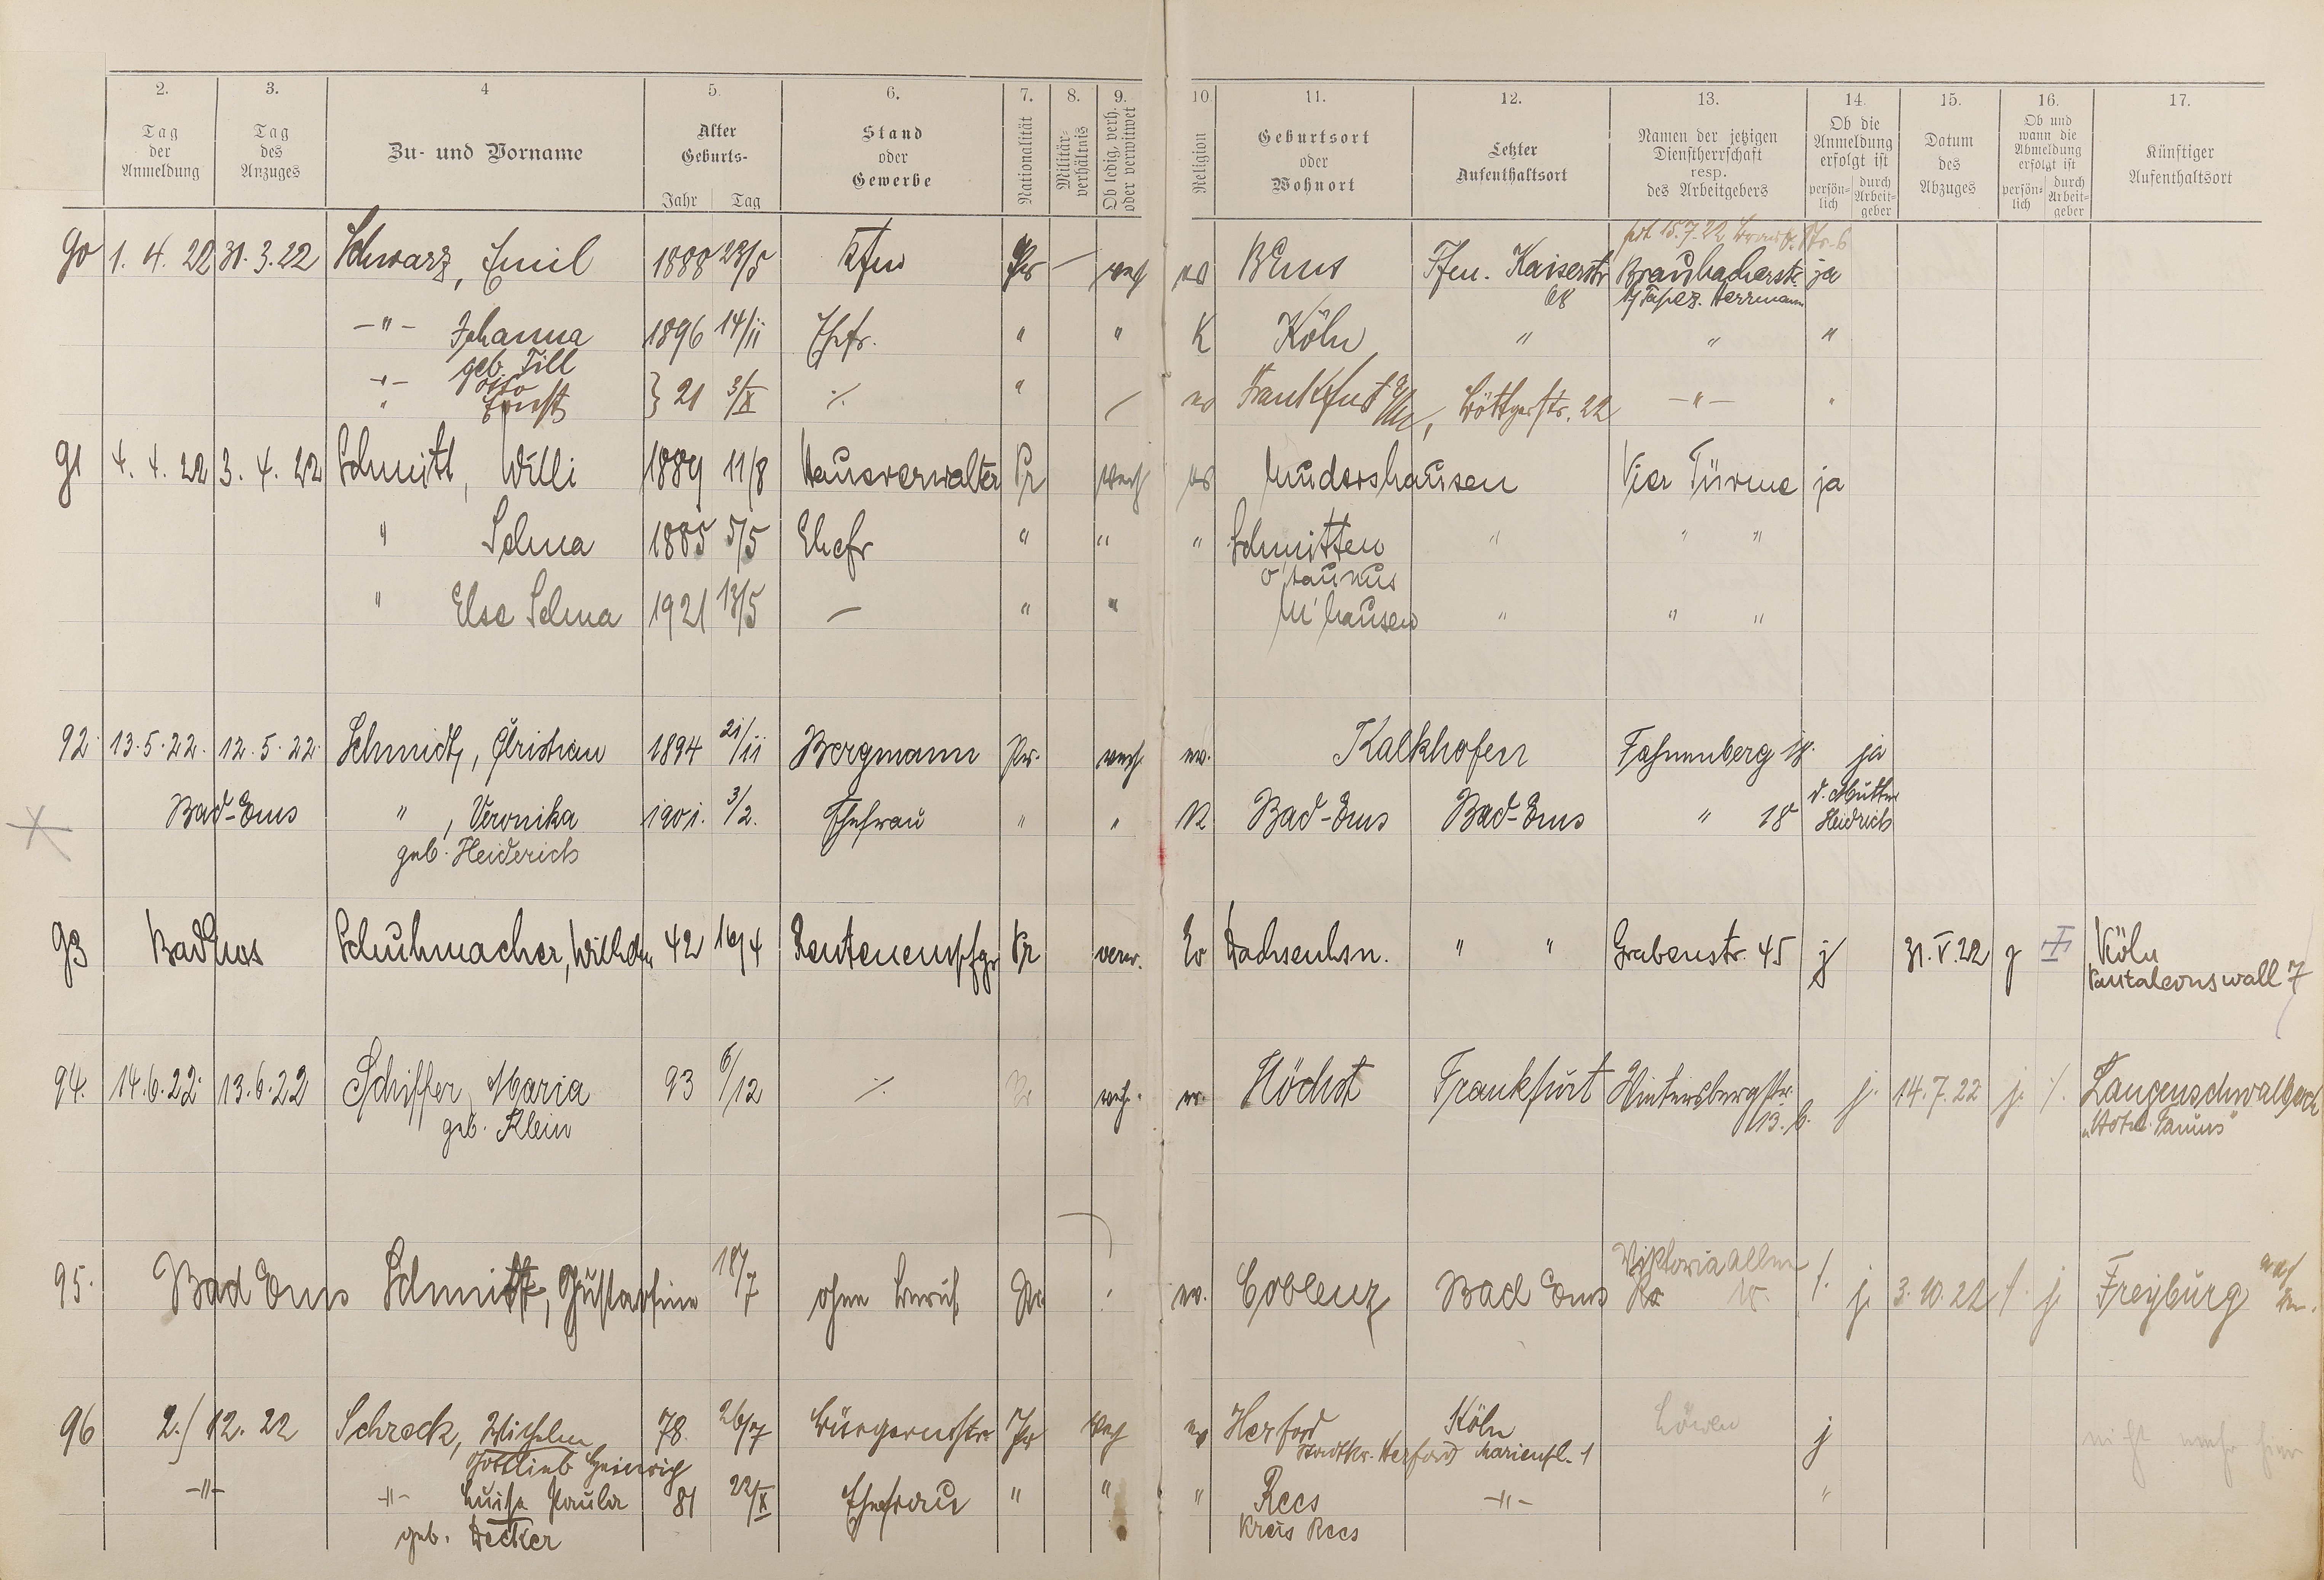 2. 3. 4 5. 6. 7. 8. 9. 10. 11. 12. 13. 14. 15. 16. 17.
Tag der Anmeldung
Tag des Anzuges
Zu- und Vorname
Alter Geburts- Jahr Tag
Stand oder Gewerbe
Nationalität
Militär-verhältnis
Ob ledig, verh. oder verwitwet
Religion
Geburtsort oder Wohnort
Letzter Aufenthaltsort
Namen der jetzigen Dienstherrschaft resp. des Arbeitgebers
Ob die Anmeldung erfolgt ist persön-lich durch Arbeit-geber
Datum des Abzuges
Ob und wann die Abmeldung erfolgt ist persön-lich durch Arbeit-geber
Künftiger Aufenthaltsort
90 1. 4. 22 31. 3. 22 Schwarz, Emil 1888 23/5 Kfm Pr — verh ev BEms Ffm. Kaiserstr 68 Braubacherstr. ja
Tapez. Herrmann
-"- Johanna 1896 14/11 Ehefr. " " K Köln " " "
geb. Till
-"- Otto
" Ernst } 21 3/X ./. " / ev Frankfurt a/M, Böttgerstr. 22 -"- "
91 4. 4. 22 3. 4. 22 Schmitt, Willi 1889 11/8 Hausverwalter Pr verh ev Mudershausen Vier Türme ja
" Selma 1885 5/5 Ehefr " " " Schmitten " " "
o/taunus
" Else Selma 1921 13/5 — " " M'hausen " " "
92. 13. 5. 22. 12. 5. 22. Schmidt, Christian 1894 21/11 Bergmann Pr. verh. ev. Kalkhofen Fahnenberg 18. ja
Bad-Ems " , Veronika 1901. 3/2. Ehefrau " " K Bad-Ems Bad-Ems " 18 d. Mutter Heidrich
geb. Heiderich
93 Bad Ems Schuhmacher, Wilhelm 42 16/4 Rentenempfgr Pr verw. Ev Dachsenhsn. " " Grabenstr. 45 j 31. V. 22 j Köln
Pantaleonswall 7
94. 14. 6. 22. 13. 6. 22 Schiffer, Maria 93 6/12 ./. Pr verh. ev. Höchst Frankfurt Wintersbergstr. 13. j. 14. 7. 22 j. ./. Langenschwalbach
geb. Klein "Hotel Taunus"
95. Bad Ems Schmitt, Gustavine 18/7 ohne Beruf Pr. ev. Coblenz Bad Ems Viktoriaallee ./. j. 3. 10. 22 ./. j. Freyburg
96 2./12. 22 Schrock, Wilhelm 78. 26/7 Bürgermstr. Pr verh ev Herford Köln Löwen j nicht mehr hier
Gottlieb Heinrich Stadtkr. Herford Marienpl. 1
-"- -"- Luise Paula 81 22/X Ehefrau " " " Rees -"- "
geb. Decker Kreis Rees